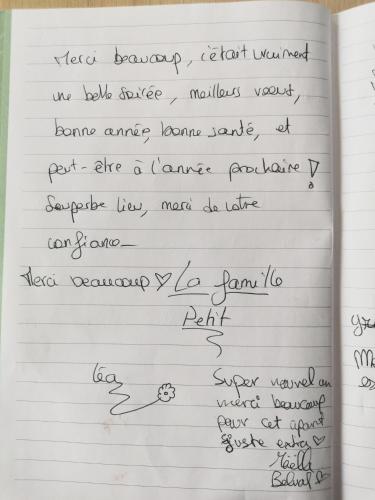 Merci beaucoup, c'était vraiment
une belle soirée, meilleurs voeux,
bonne année, bonne santé, et
peut-être à l'année prochaine !
Superbe lieu, merci de votre
confiance
Merci beaucoup ♡ La famille
Petit
Léa
Super nouvel an
merci beaucoup
pour cet apart
juste extra ♡
Maëlla